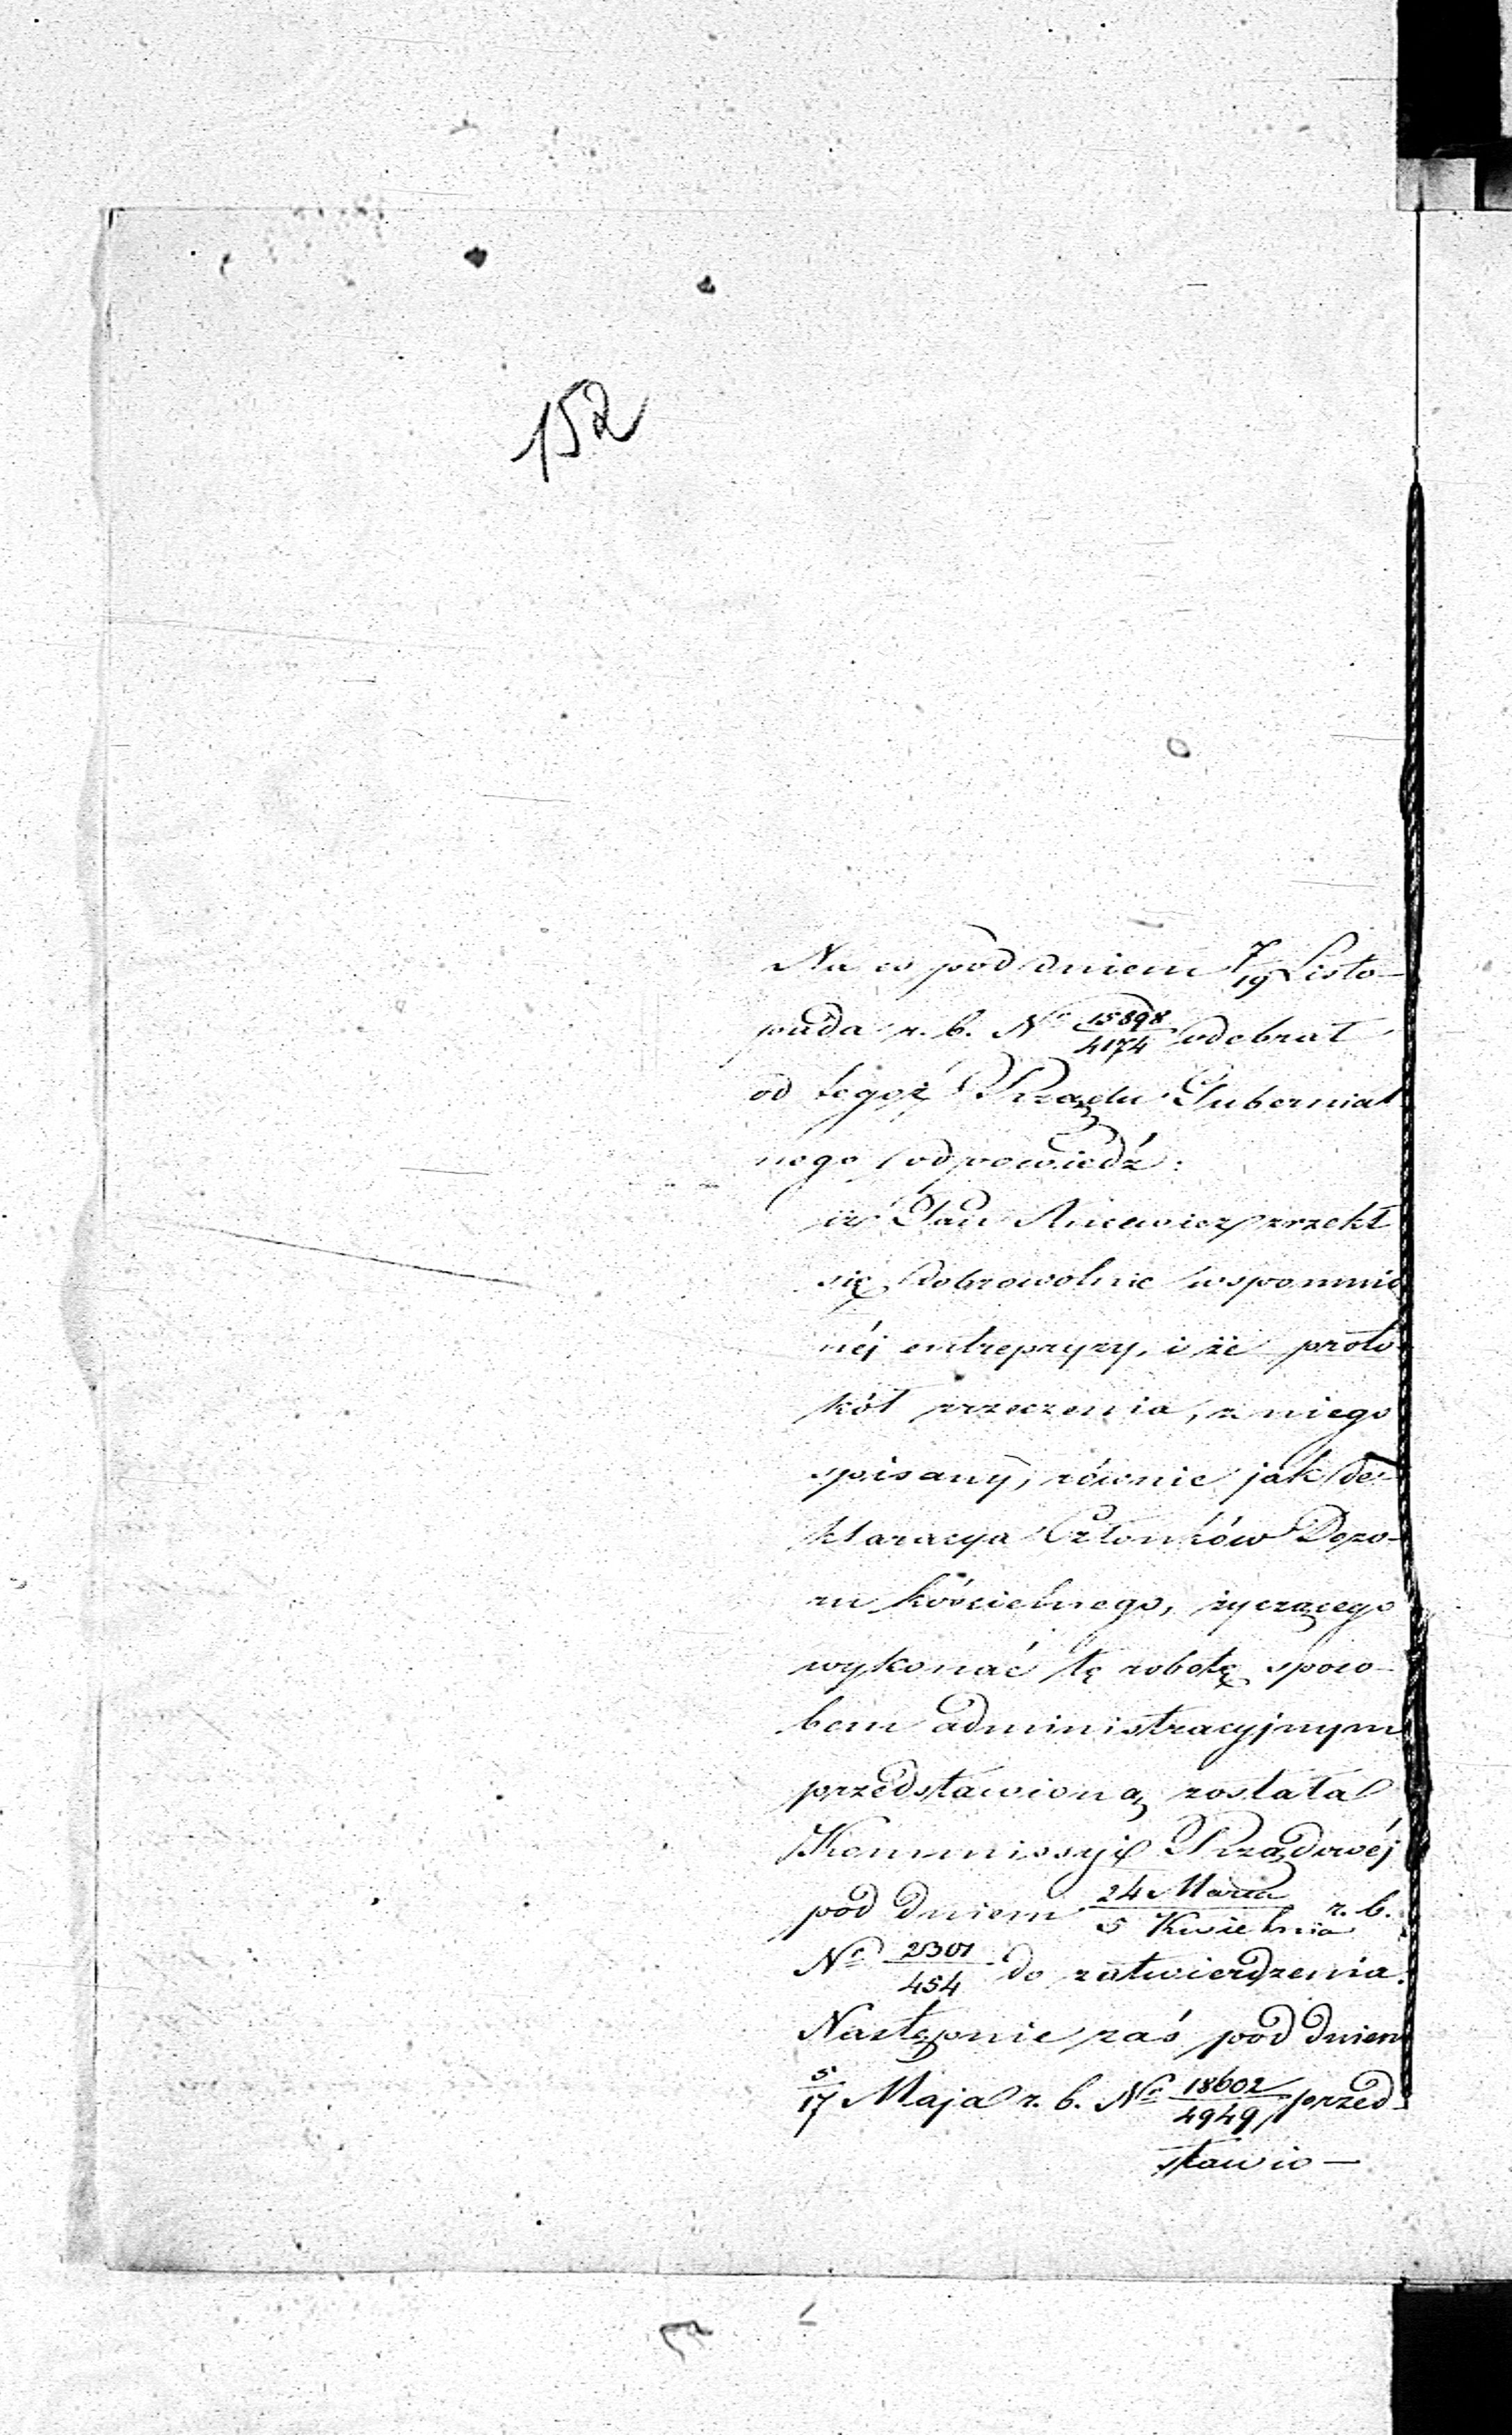 152
Na co pod dniem 7/19 Listo-
pada r. b. Nº 15898/4174 odebrał
od tegoż Rządu Gubernial
nego odpowiedź:
iż Pan zrzekł
się dobrowolnie wspomnio
néj entrepryzy, i że proto-
kół zrzeczenia, z niego
spisany, równie jak de-
klaracya Członków Dozo-
ru kościelnego, życzącego
wykonać tę robotę sposo-
bem administracyjnym
przedstawioną została
Kommissyi Rządowéj
pod dniem 24 Marca/5 Kwietnia r. b.
Nº 2301/454 do zatwierdzenia.
Następnie zaś pod dniem
5/17 Maja r. b. Nº 18602/4949 przed-
stawio-